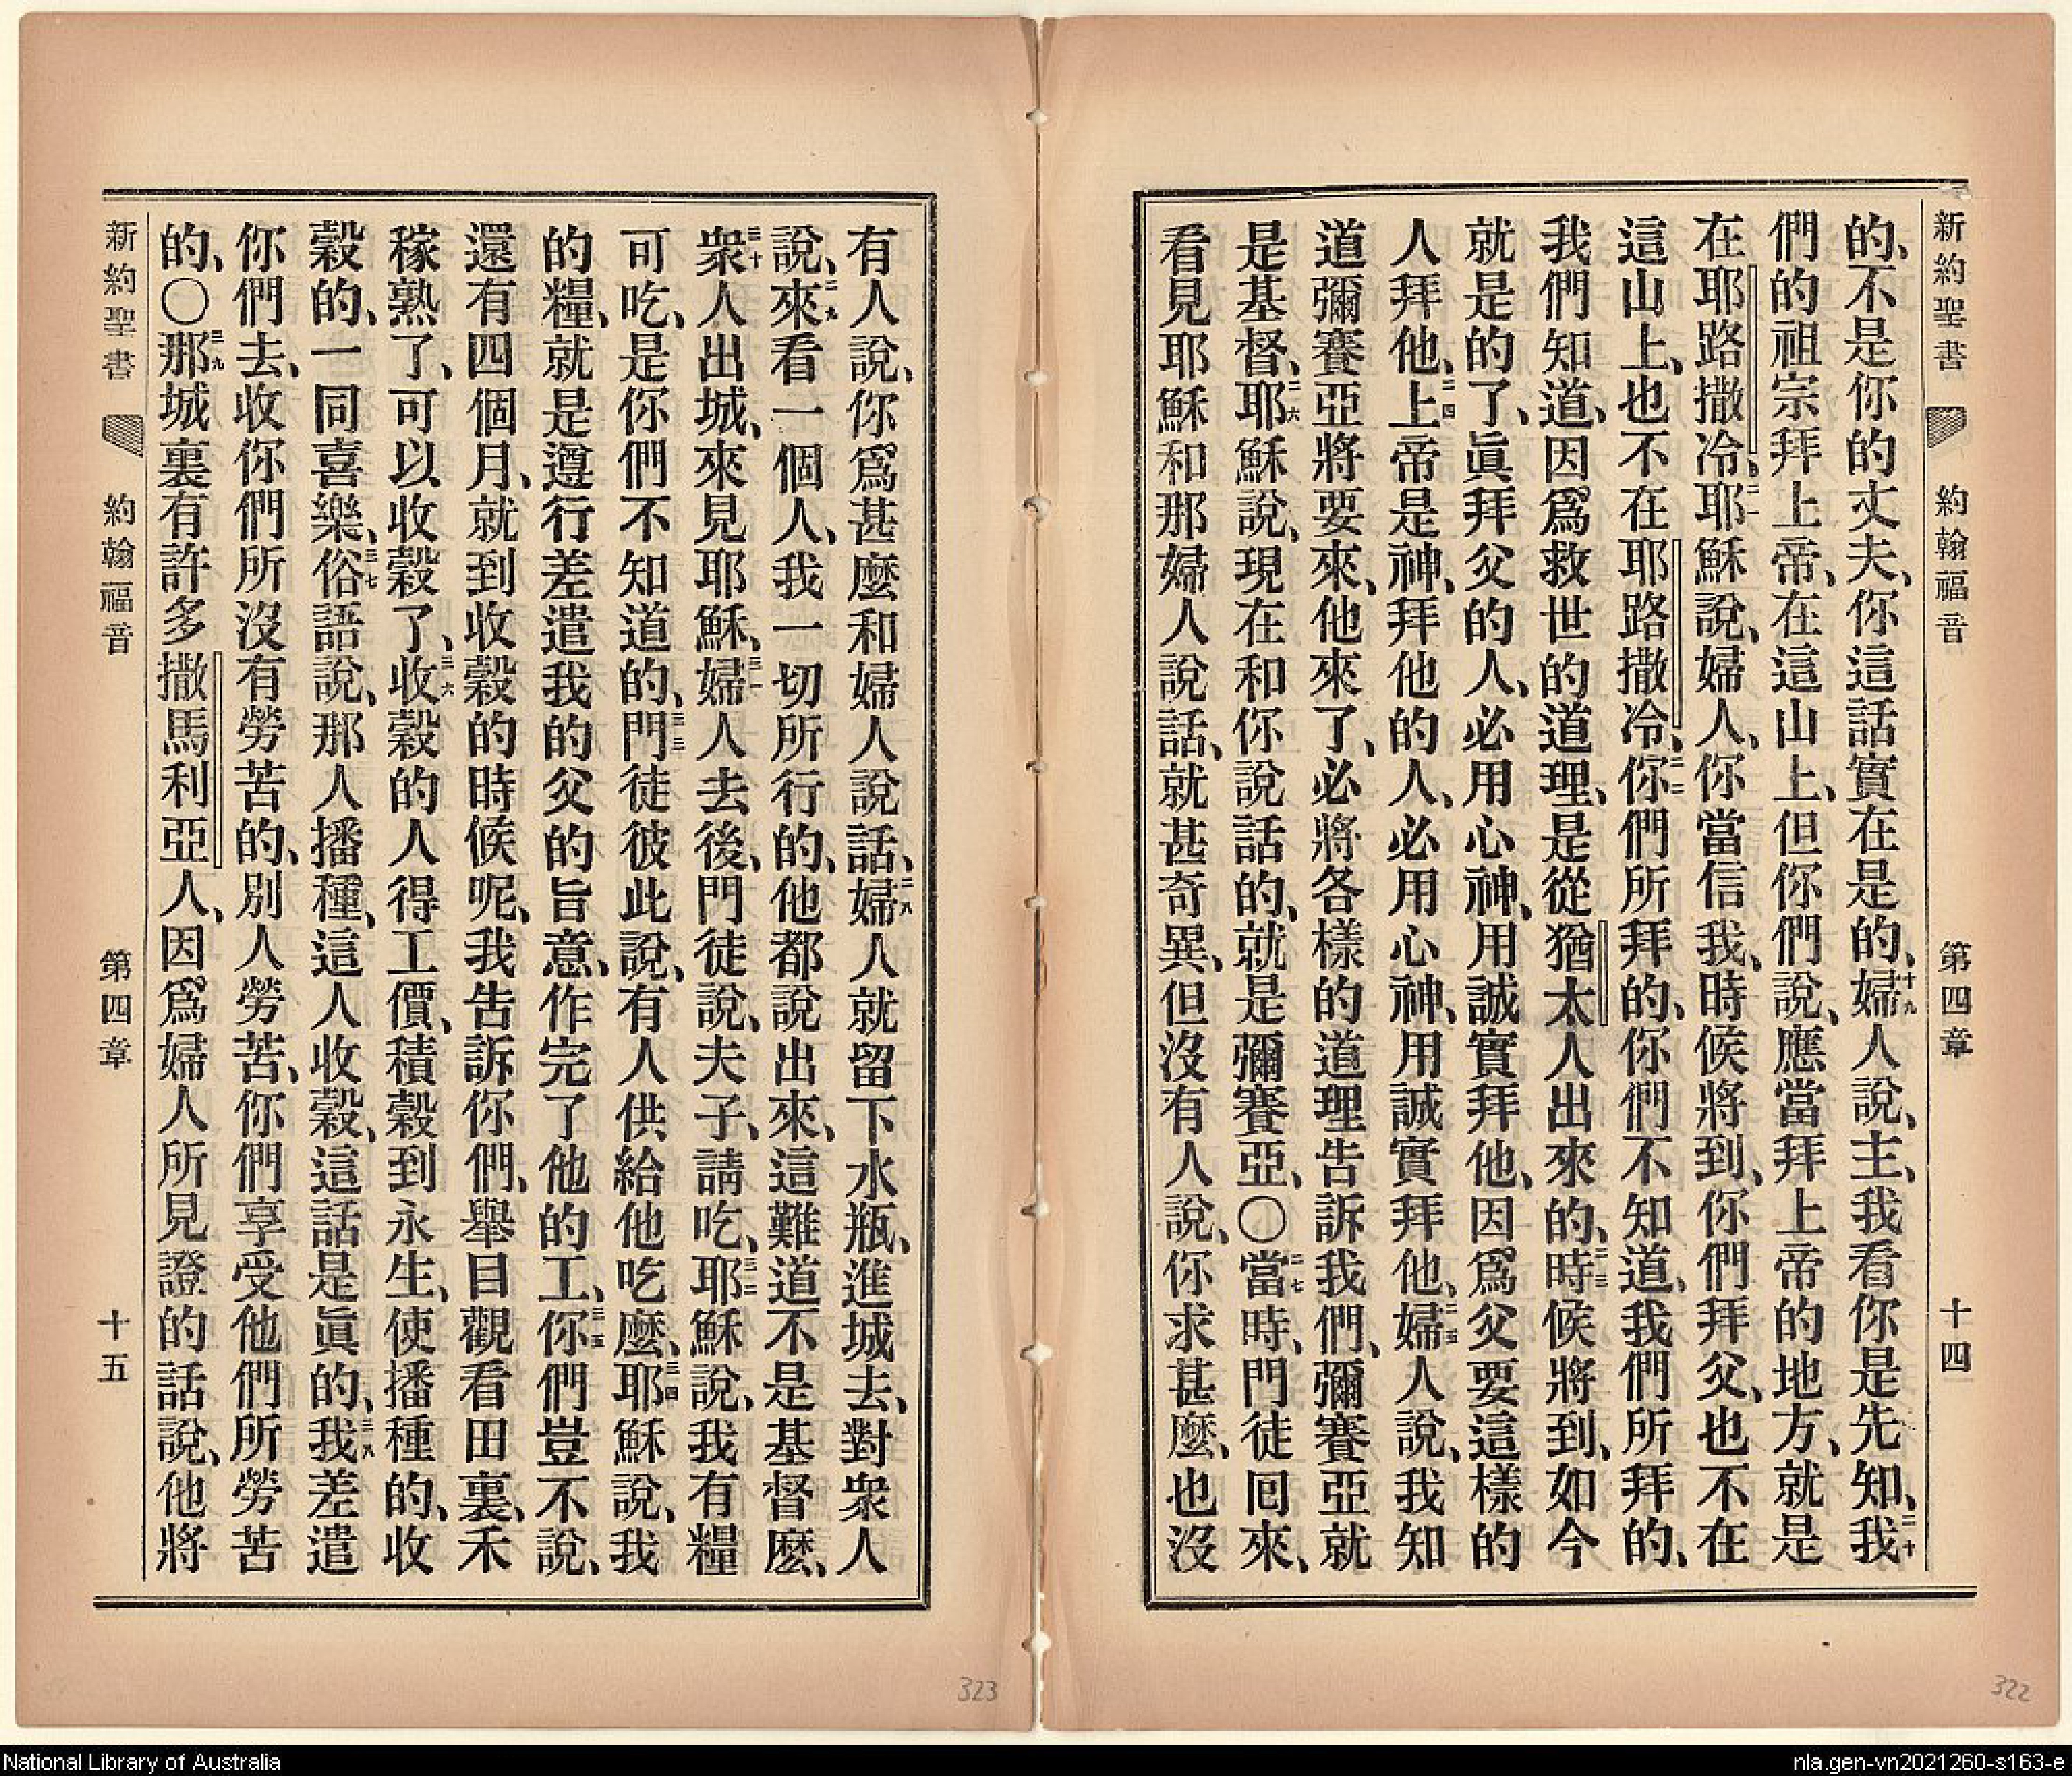 新約聖書 約翰福音 第四章 十四
的、不是你的丈夫、你這話實在是的、十九婦人說、主、我看你是先知、二十我
們的祖宗拜上帝、在這山上、但你們說、應當拜上帝的地方、就是
在耶路撒冷、二一耶穌說、婦人、你當信我、時候將到、你們拜父、也不在
這山上、也不在耶路撒冷、二二你們所拜的、你們不知道、我們所拜的、
我們知道、因爲救世的道理、是從猶太人出來的、二三時候將到、如今
就是的了、眞拜父的人、必用心神、用誠實拜他、因爲父要這樣的
人拜他、二四上帝是神、拜他的人、必用心神、用誠實拜他、二五婦人說、我知
道彌賽亞將要來、他來了、必將各樣的道理告訴我們、彌賽亞就
是基督、二六耶穌說、現在和你說話的、就是彌賽亞、〇二七當時、門徒囘來、
看見耶穌和那婦人說話、就甚奇異、但沒有人說、你求甚麼、也沒
322
有人說、你爲甚麼和婦人說話、二八婦人就留下水瓶、進城去、對衆人
說、二九來看一個人、我一切所行的、他都說出來、這難道不是基督麼、
三十衆人出城、來見耶穌、三一婦人去後、門徒說、夫子、請吃、三二耶穌說、我有糧
可吃、是你們不知道的、三三門徒彼此說、有人供給他吃麼、三四耶穌說、我
的糧、就是遵行差遣我的父的旨意、作完了他的工、三五你們豈不說、
還有四個月、就到收穀的時候呢、我告訴你們、舉目觀看田裏、禾
稼熟了、可以收穀了、三六收穀的人得工價、積穀到永生、使播種的、收
穀的、一同喜樂、三七俗語說、那人播種、這人收穀、這話是眞的、三八我差遣
你們去、收你們所沒有勞苦的、別人勞苦、你們享受他們所勞苦
的、〇三九那城裏有許多撒馬利亞人、因爲婦人所見證的話說、他將
新約聖書 約翰福音 第四章 十五
323
National Library of Australia
nla.gen-vn2021260-s163-e